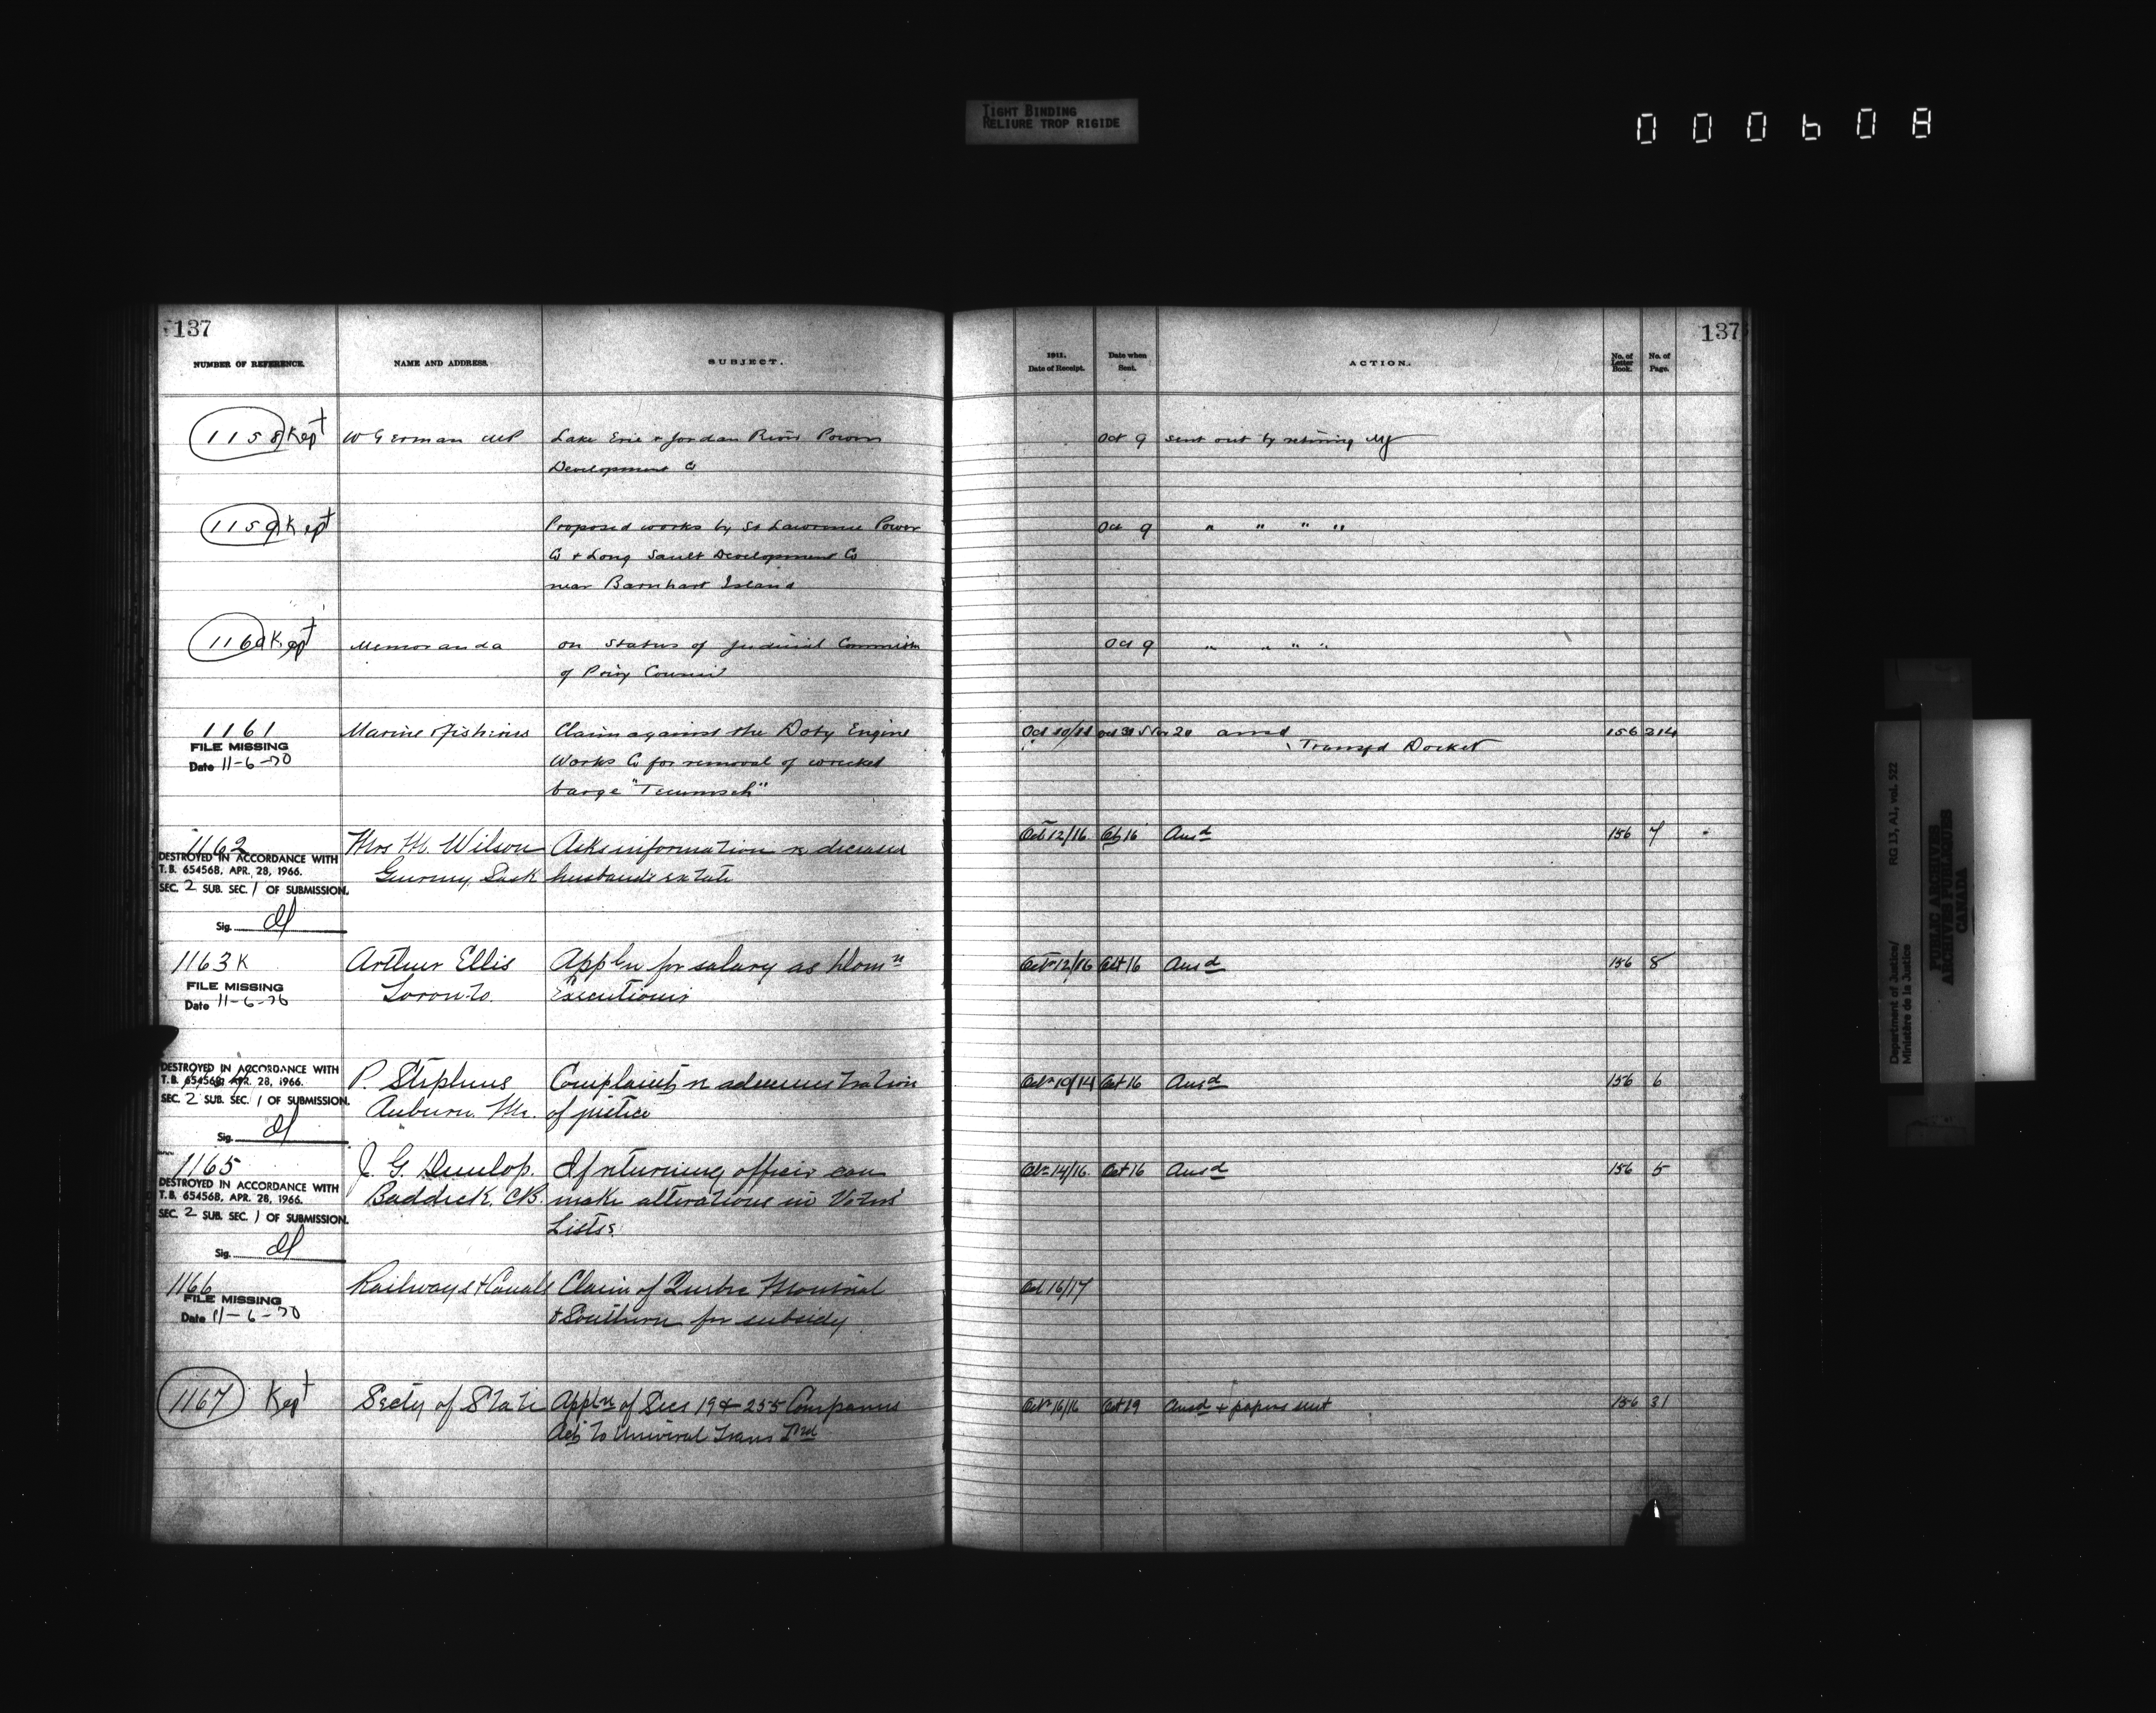 TIGHT BINDING
RELIURE TROP RIGIDE
000608
137
NUMBER OF REFERENCE. NAME AND ADDRESS. SUBJECT.
1158 Kept W German MP Lake Erie & Jordan River Power
Development Co
1159 Kept Proposed works by St Lawrence Power
Co & Long Sault Development Co
near Barnhart Island
1160 Kept Memoranda on Status of Judicial
of Privy Council
1161 Marine & Fisheries Claim against the Doty Engine
FILE MISSING
Date 11-6-70 Works Co for removal of wrecked
barge "Tecumseh"
1162 Mrs M. Wilson Asks information re deceased
DESTROYED IN ACCORDANCE WITH
T.B. 654568, APR. 28, 1966. Sask husbands estate
SEC. 2 SUB. SEC. 1 OF SUBMISSION.
Sig.
1163 K Arthur Ellis Appln for salary as Domn
FILE MISSING Toronto. Executioner
Date 11-6-70
DESTROYED IN ACCORDANCE WITH
T.B. 654568, APR. 28, 1966. P. Stephens Complaint re administration
SEC. 2 SUB. SEC. 1 OF SUBMISSION. Auburn Me. of justice
Sig.
1165 J. G. Dunlop. If returning officer can
DESTROYED IN ACCORDANCE WITH Baddeck, C.B. make alterations in Voters'
T.B. 654568, APR. 28, 1966.
SEC. 2 SUB. SEC. 1 OF SUBMISSION. Lists.
Sig.
1166 Railways & Canals Claim of Quebec Montreal
FILE MISSING
Date 11-6-70 & Southern for subsidy
1167 Kept Secty of State Appln of Secs 19 & 255 Companies
Act to Universal Trans
137
1911.
Date of Receipt. Date when
Sent. ACTION. No. of
Letter
Book. No. of
Page.
Oct 9 sent out by retiring
Oct 9 " " " "
Oct 9 " " " "
Oct 10/11 ansd 156 214
Transfd Docket
Oct 12/16 Oct 16 Ansd 156 7
Oct 12/16 Oct 16 Ansd 156 8
Oct 10/14 Oct 16 Ansd 156 6
Oct 14/16 Oct 16 Ansd 156 5
Oct 16/17
Oct 16/16 Oct 19 Ansd & papers sent 156 31
Department of Justice/ RG 13, A1, vol. 522
Ministère de la Justice
PUBLIC ARCHIVES
ARCHIVES PUBLIQUES
CANADA